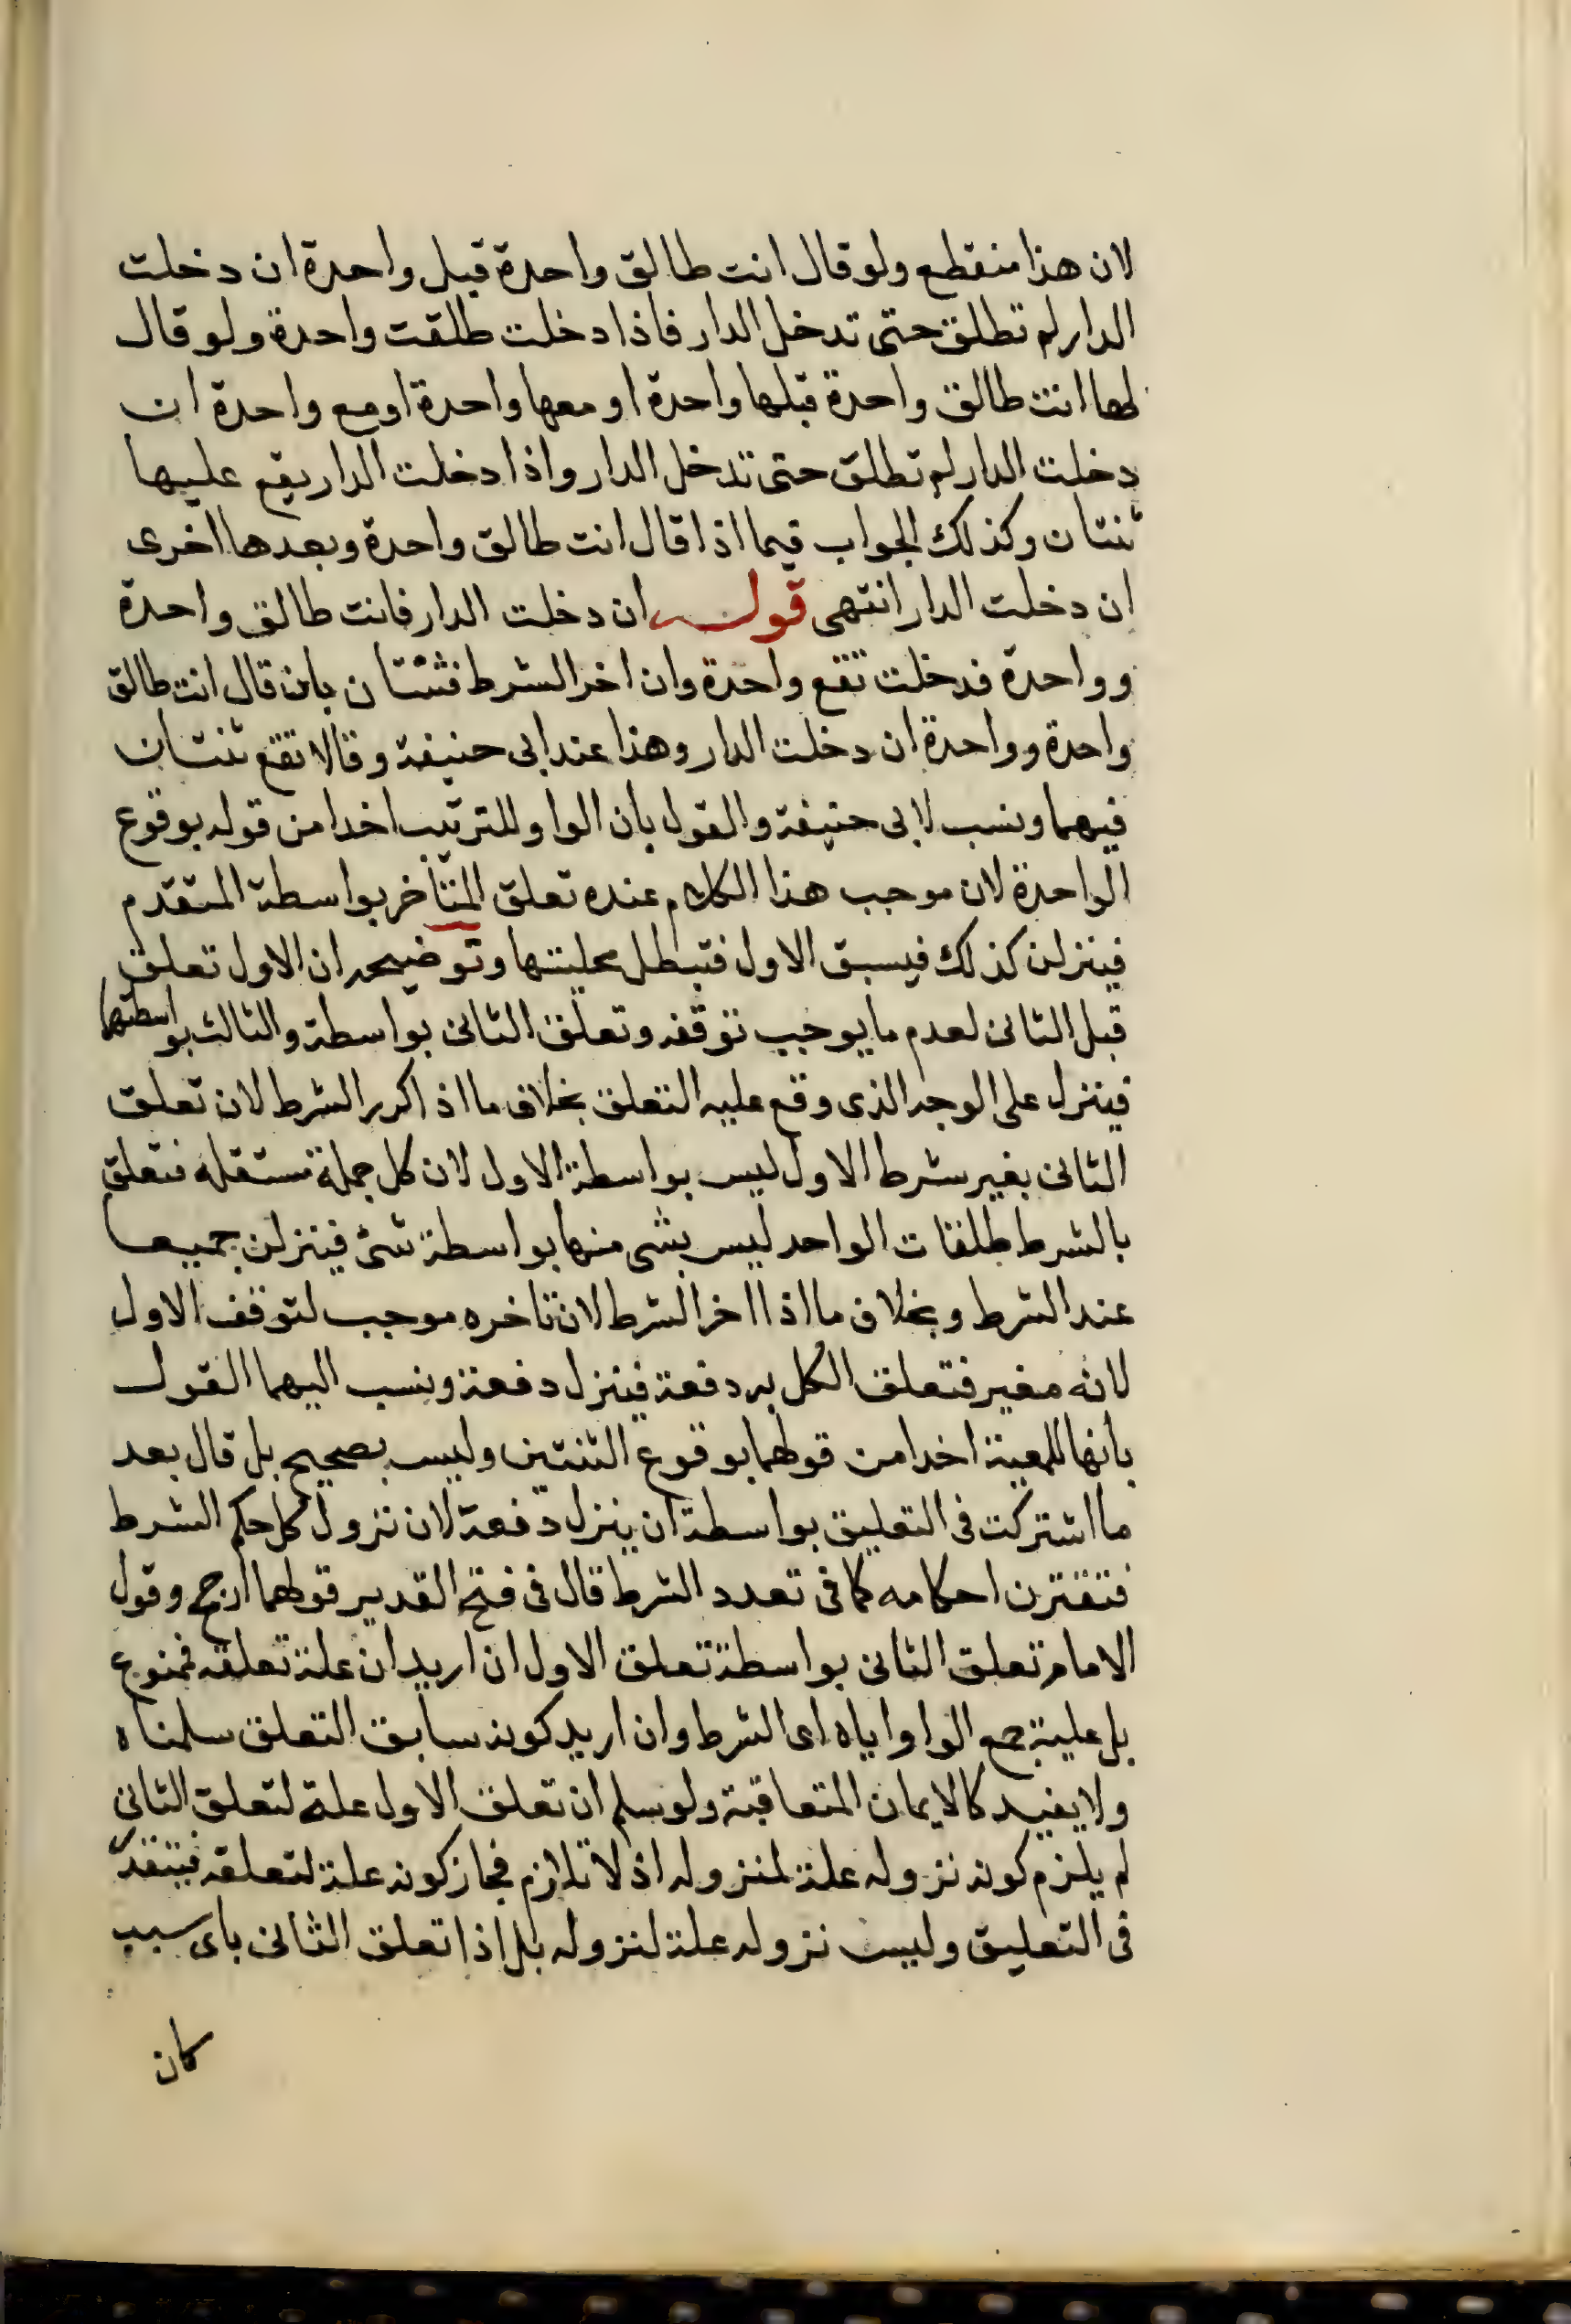 لان هذا منقطع ولو قال انت طالق واحدة قبل واحدة ان دخلت
الدار لم تطلق حتى تدخل الدار فاذا دخلت طلقت واحدة ولو قال
لها انت طالق واحدة قبلها واحدة او معها واحدة او مع واحدة ان
دخلت الدار لم تطلق حتى تدخل الدار واذا دخلت الدار يقع عليها
ثنتان وكذلك الجواب فيما اذا قال انت طالق واحدة وبعدها اخرى
ان دخلت الدار انتهى قوله ان دخلت الدار فانت طالق واحدة
وواحدة فدخلت تقع واحدة وان اخر الشرط فثنتان بان قال انت طالق
واحدة وواحدة ان دخلت الدار وهذا عند ابى حنيفة وقالا تقع ثنتان
فيهما ونسب لابى حنيفة والقول بان الواو للترتيب اخدا من قوله بوقوع
الواحدة لان موجب هذا الكلام عنده تعلق المتأخر بواسطة المتقدم
فينزلن كذلك فيسبق الاول فتبطل محليتها وتوضيحه ان الاول تعلق
قبل الثانى لعدم ما يوجب توقفه وتعلق الثانى بواسطة والثالث بواسطتهما
فينزل على الوجه الذى وقع عليه التعلق بخلاف ما اذا كرر الشرط لان تعلق
الثانى بغير شرط الاول ليس بواسطة الاول لان كل جملة مستقله فتعلق
بالشرط طلقات الواحد ليس بشى منها بواسطة شئ فينزلن جميعا
عند الشرط وبخلاف ما اذا اخر الشرط لان تاخره موجب لتوقف الاول
لانه مغير فتعلق الكل به دفعة فينزل دفعة ونسب اليهما القول
بانها للمعية اخدا من قولهما بوقوع الثنتين وليس بصحيح بل قال بعد
ما اشتركت فى التعليق بواسطة ان ينزل دفعة لان نزول كل حكم الشرط
فتقترن احكامه كما فى تعدد الشرط قال فى فتح القدير قولهما ارجح وقول
الامام تعلق الثانى بواسطة تعلق الاول ان اريد ان علة تعلقه فممنوع
بل علية جمع الواو اياه اى الشرط وان اريد كونه سابق التعلق سلمناه
ولا يفيد كالايمان المتعاقبة ولو سلم ان تعلق الاول علة لتعلق الثانى
لم يلزم كونه نزوله علة لنزوله اذ لا تلازم فجاز كونه علة لتعلقه فيتقدم
فى التعليق وليس نزوله علة لنزوله بل اذا تعلق الثانى باى سبب
كان